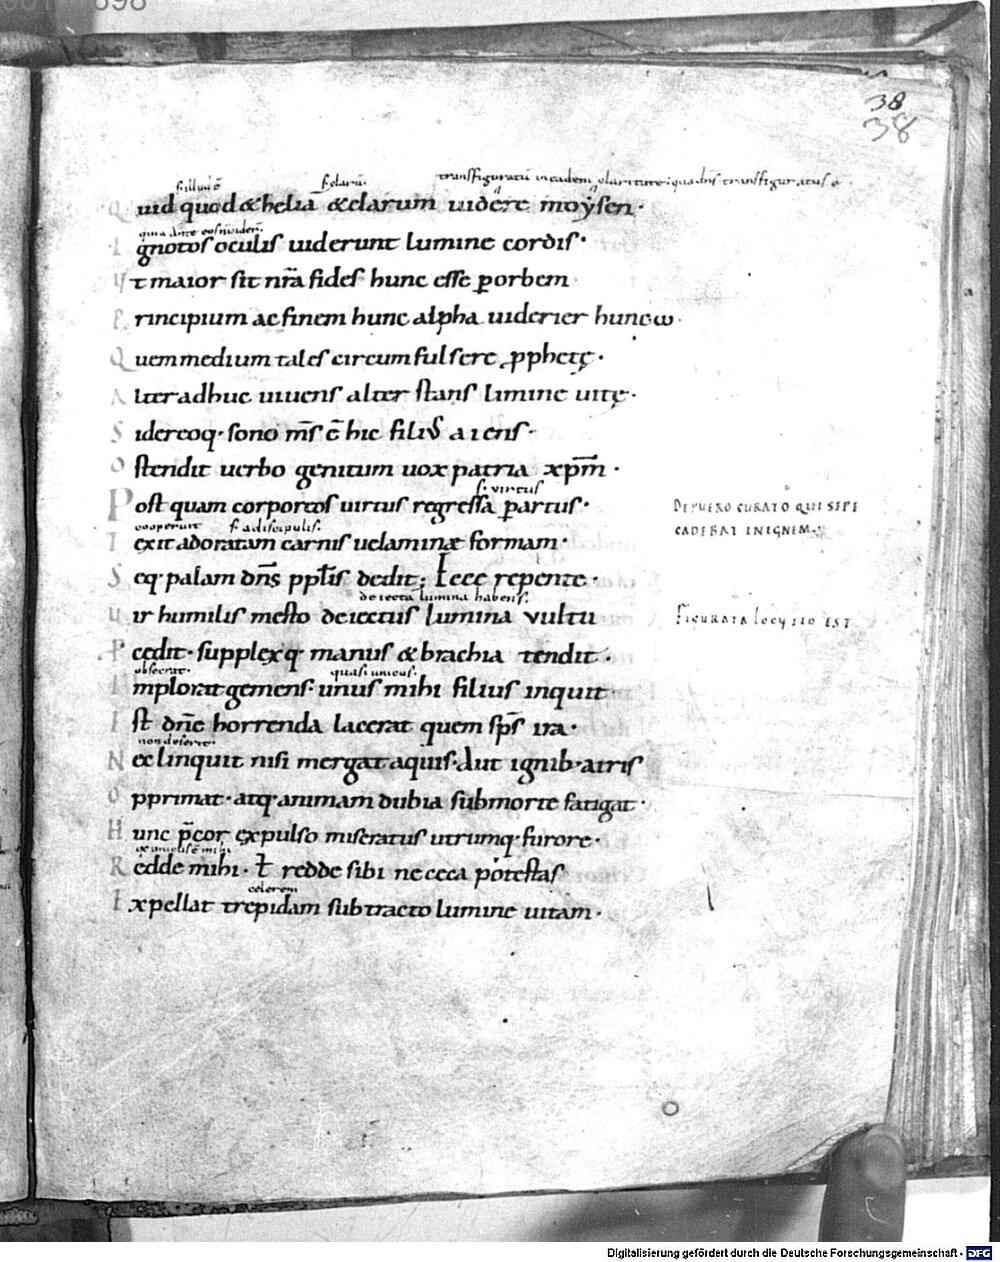 38
38
Quid quod & helia & clarum uidere moẏsen·
Ignotos oculis uiderunt lumine cordis·
Vt maior sit nr̄a fides hunc esse ꝑ orbem
Principium ac finem hunc alpha uiderier hunc ω·
Quem medium tales circum fulsere ꝓphetę·
Alter adhuc uiuens alter stans limine uitę·
Sidereoq· sono m̄s ē hic filius aiens·
Ostendit uerbo genitum uox patria xp̄m·
s· virtus
Post quam corporeos uirtus regressa ꝑ artus·
DE PUERO CURATO QUI SEPE
CADEBAT IN IGNEM·
cooperuit s· a discipulis·
Texit adoratam carnis uelamine formam·
Seq· palam dn̄s ppl̄is dedit; Ecce repente·
deiecta lumina habens·
Vir humilis mesto deiectus lumina vultu
FIGURATA LOCUTIO EST
Pcedit· supplexq· manus & brachia tendit·
obsecrat· quasi unicus·
Implorat gemens· unus mihi filius inquit
Est dn̄e horrenda lacerat quem sp̄s ira·
non deserit·
Nec linquit nisi mergat aquis· Aut ignib· atris
Opprimat· atq· animam dubia sub morte fatigat·
Hunc p̄cor expulso miseratus utrumq· furore·
Redde mihi· ł redde sibi ne ceca potestas
celerem
Expellat trepidam subtracto lumine uitam·
Digitalisierung gefördert durch die Deutsche Forschungsgemeinschaft - DFG